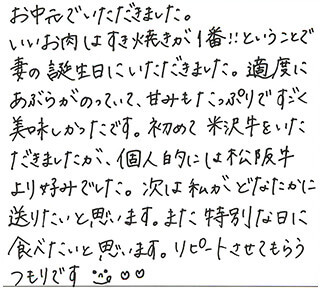 お中元でいただきました。
いいお肉はすき焼きが1番!!ということで
妻の誕生日にいただきました。適度に
あぶらがのっていて、甘みもたっぷりですごく
美味しかったです。初めて米沢牛をいた
だきましたが、個人的には松阪牛
より好みでした。次は私がどなたかに
送りたいと思います。また特別な日に
食べたいと思います。リピートさせてもらう
つもりです